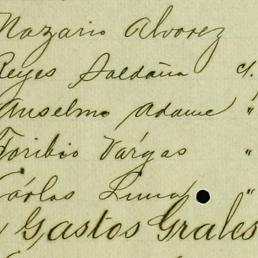 Nazario Alvorez
Reyes Saldaña c/.
Anselmo Adame "
Toribio Várgas "
Cárlos Luna "
Gastos Grales